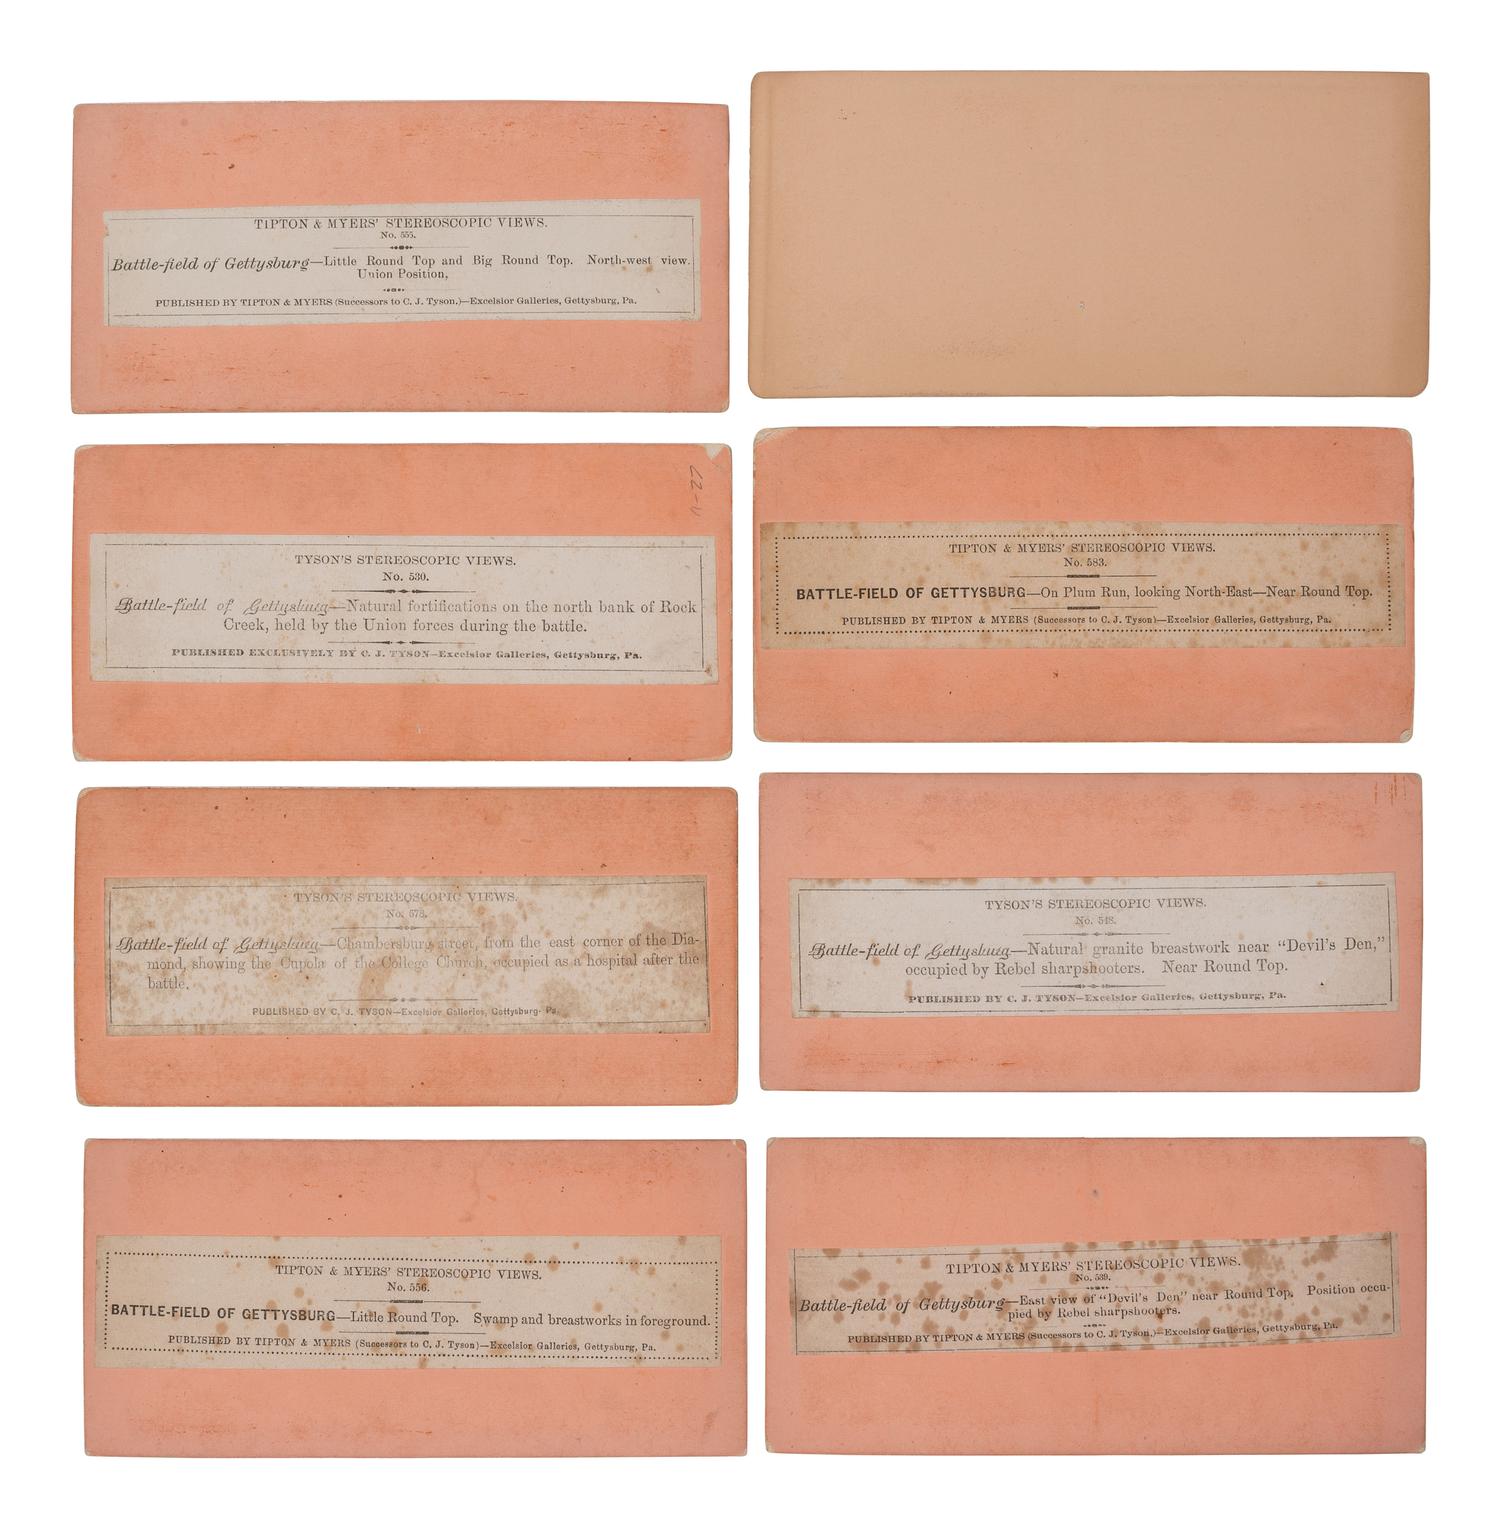 TIPTON & MYERS' STEREOSCOPIC VIEWS.
No. 555.
Battle-field of Gettysburg—Little Round Top and Big Round Top. North-west view.
Union Position,
PUBLISHED BY TIPTON & MYERS (Successors to C. J. Tyson.)—Excelsior Galleries, Gettysburg, Pa.
TYSON'S STEREOSCOPIC VIEWS.
No. 530.
Battle-field of Gettysburg—Natural fortifications on the north bank of Rock
Creek, held by the Union forces during the battle.
PUBLISHED EXCLUSIVELY BY C. J. TYSON—Excelsior Galleries, Gettysburg, Pa.
TIPTON & MYERS' STEREOSCOPIC VIEWS.
No. 583.
BATTLE-FIELD OF GETTYSBURG—On Plum Run, looking North-East—Near Round Top.
PUBLISHED BY TIPTON & MYERS (Successors to C. J. Tyson)—Excelsior Galleries, Gettysburg, Pa.
TYSON'S STEREOSCOPIC VIEWS.
No. 578.
Battle-field of Gettysburg—Chambersburg street, from the east corner of the Dia-
mond, showing the Cupola of the College Church, occupied as a hospital after the
battle.
PUBLISHED BY C. J. TYSON—Excelsior Galleries, Gettysburg, Pa.
TYSON'S STEREOSCOPIC VIEWS.
No. 548.
Battle-field of Gettysburg—Natural granite breastwork near “Devil's Den,”
occupied by Rebel sharpshooters. Near Round Top.
PUBLISHED BY C. J. TYSON—Excelsior Galleries, Gettysburg, Pa.
TIPTON & MYERS' STEREOSCOPIC VIEWS.
No. 556.
BATTLE-FIELD OF GETTYSBURG—Little Round Top. Swamp and breastworks in foreground.
PUBLISHED BY TIPTON & MYERS (Successors to C. J. Tyson)—Excelsior Galleries, Gettysburg, Pa.
TIPTON & MYERS' STEREOSCOPIC VIEWS.
No. 539.
Battle-field of Gettysburg—East view of “Devil's Den” near Round Top. Position occu-
pied by Rebel sharpshooters.
PUBLISHED BY TIPTON & MYERS (Successors to C. J. Tyson.)—Excelsior Galleries, Gettysburg, Pa.